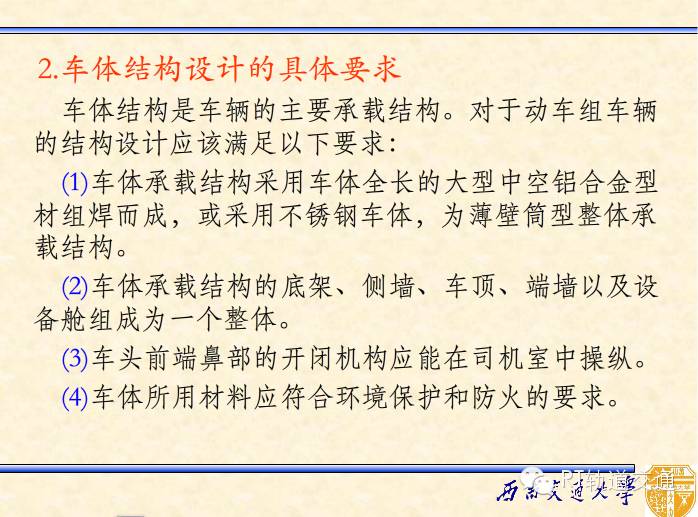 2.车体结构设计的具体要求
车体结构是车辆的主要承载结构。对于动车组车辆
的结构设计应该满足以下要求：
(1)车体承载结构采用车体全长的大型中空铝合金型
材组焊而成，或采用不锈钢车体，为薄壁筒型整体承
载结构。
(2)车体承载结构的底架、侧墙、车顶、端墙以及设
备舱组成为一个整体。
(3)车头前端鼻部的开闭机构应能在司机室中操纵。
(4)车体所用材料应符合环境保护和防火的要求。
PT轨道交通
西南交通大学